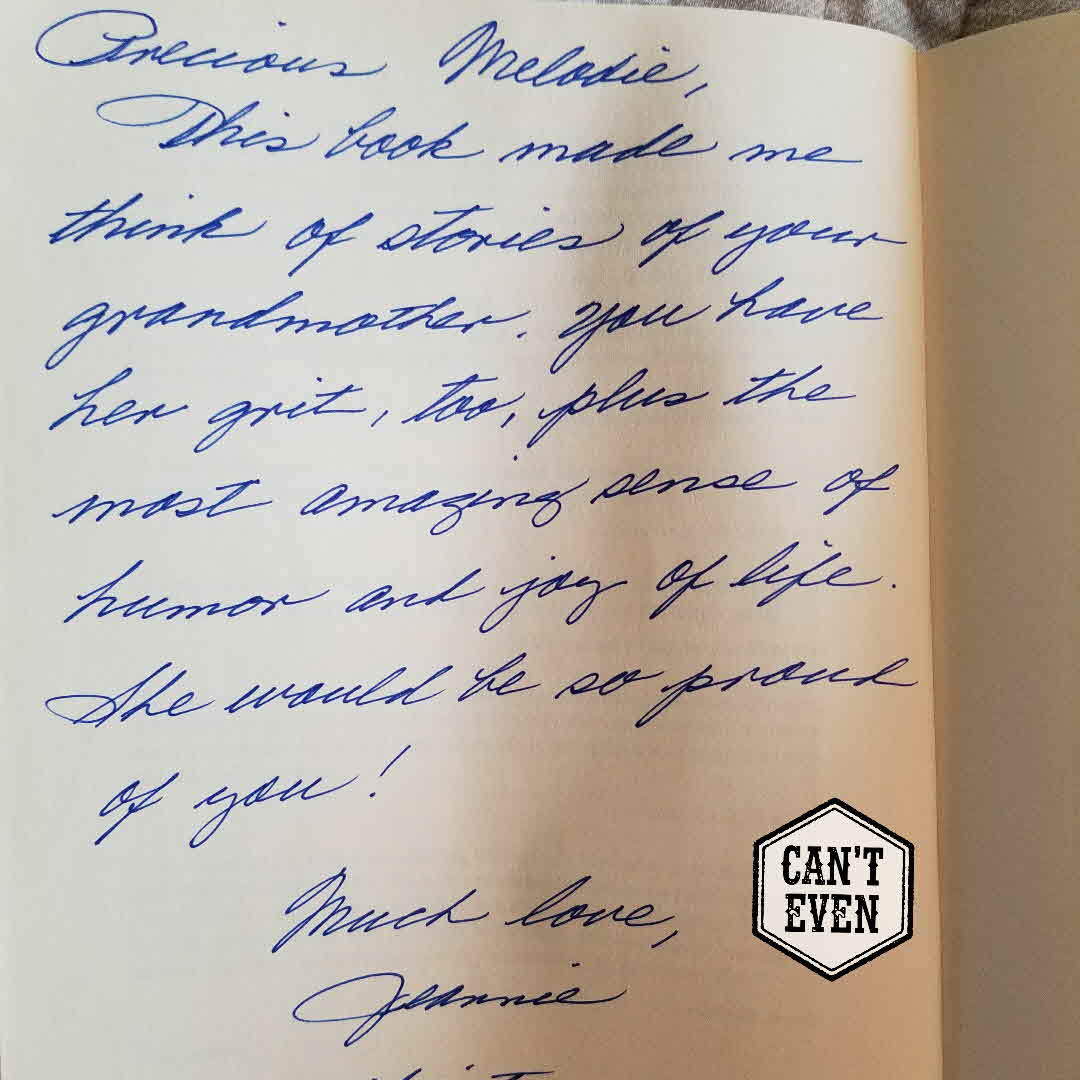 Precious Melodie,
This book made me
think of stories of your
grandmother. You have
her grit, too, plus the
most amazing sense of
humor and joy of life.
She would be so proud
of you!
Much love,
Jeannie
CAN'T
EVEN